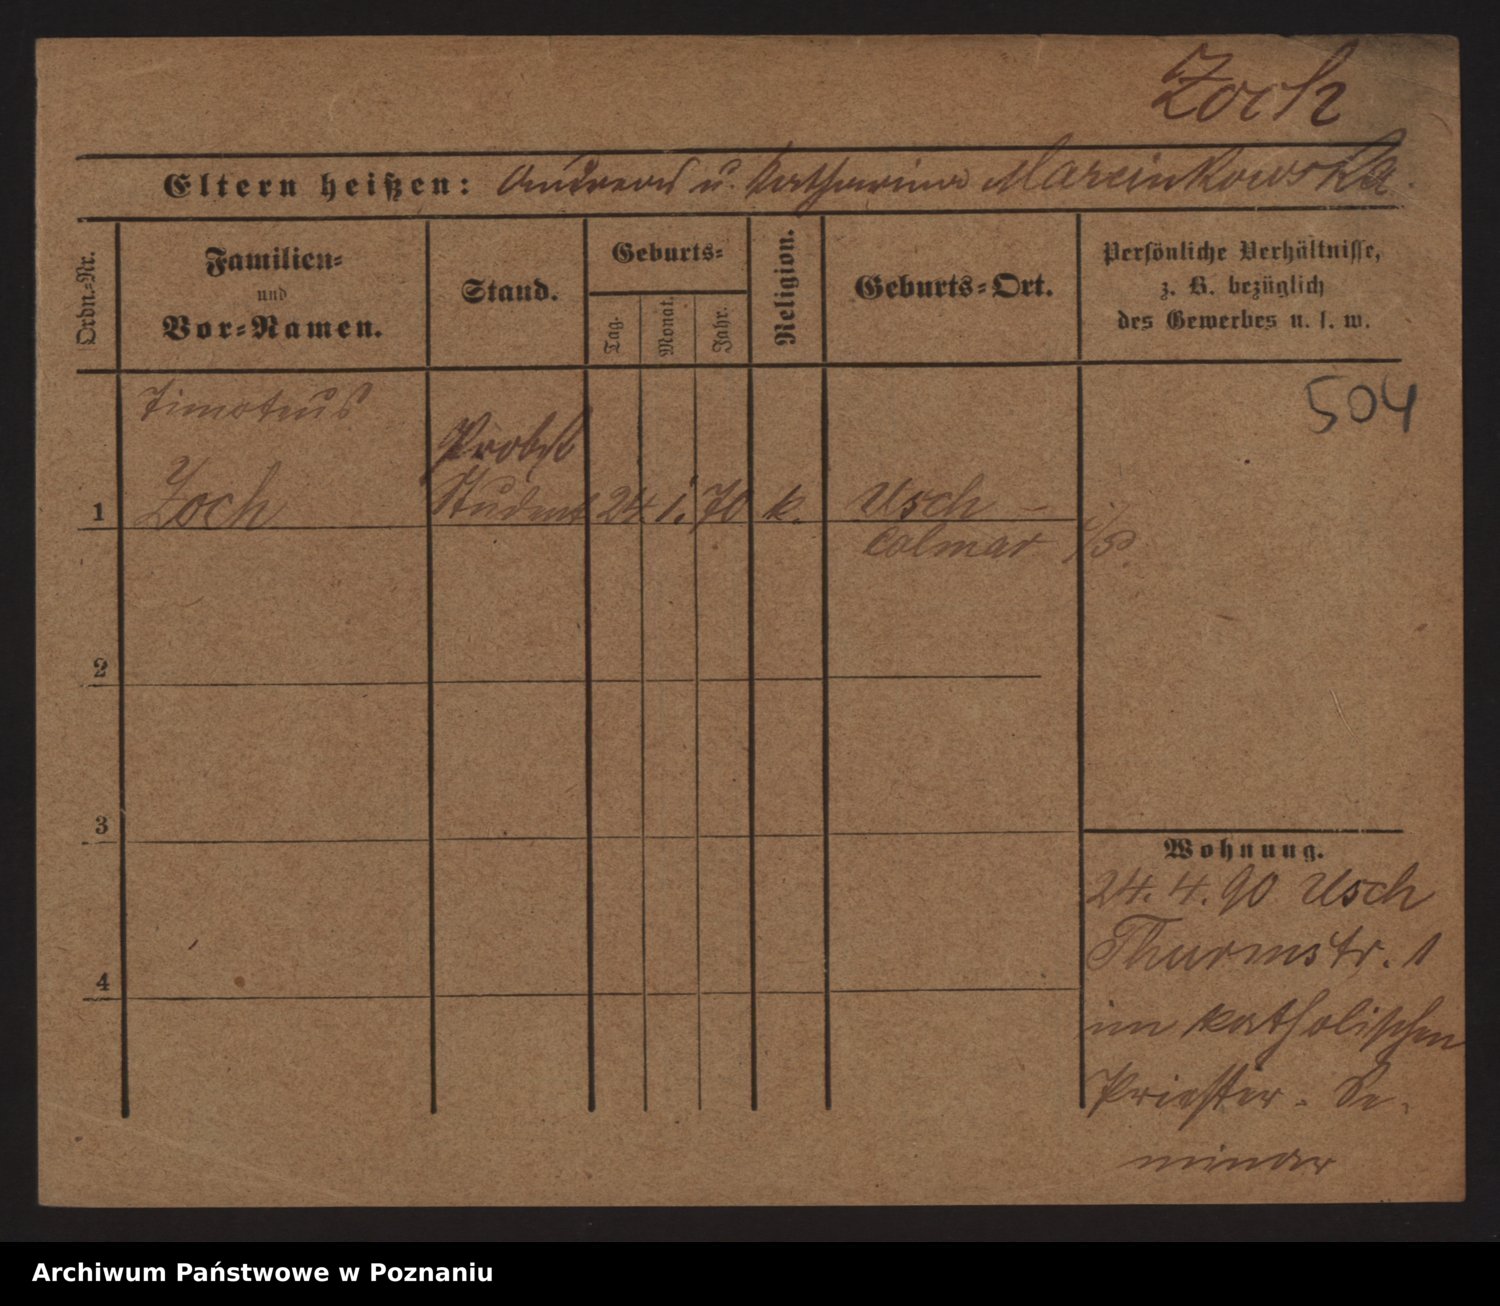 Zoch
Eltern heißen: Andreas u. Katharina Marcinkowska.
Ordn.-Nr.
Familien-
und
Vor-Namen.
Stand.
Geburts-
Tag.
Monat.
Jahr.
Religion.
Geburts-Ort.
Persönliche Verhältnisse,
z. B. bezüglich
des Gewerbes u. s. w.
504
Timoteus
Probst
1 Zoch Student 24 1. 70 k. Usch –
Colmar i/P.
2
3
4
Wohnung.
24. 4. 90 Usch
Thurmstr. 1
im katholischen
Priester-Se-
minar
Archiwum Państwowe w Poznaniu